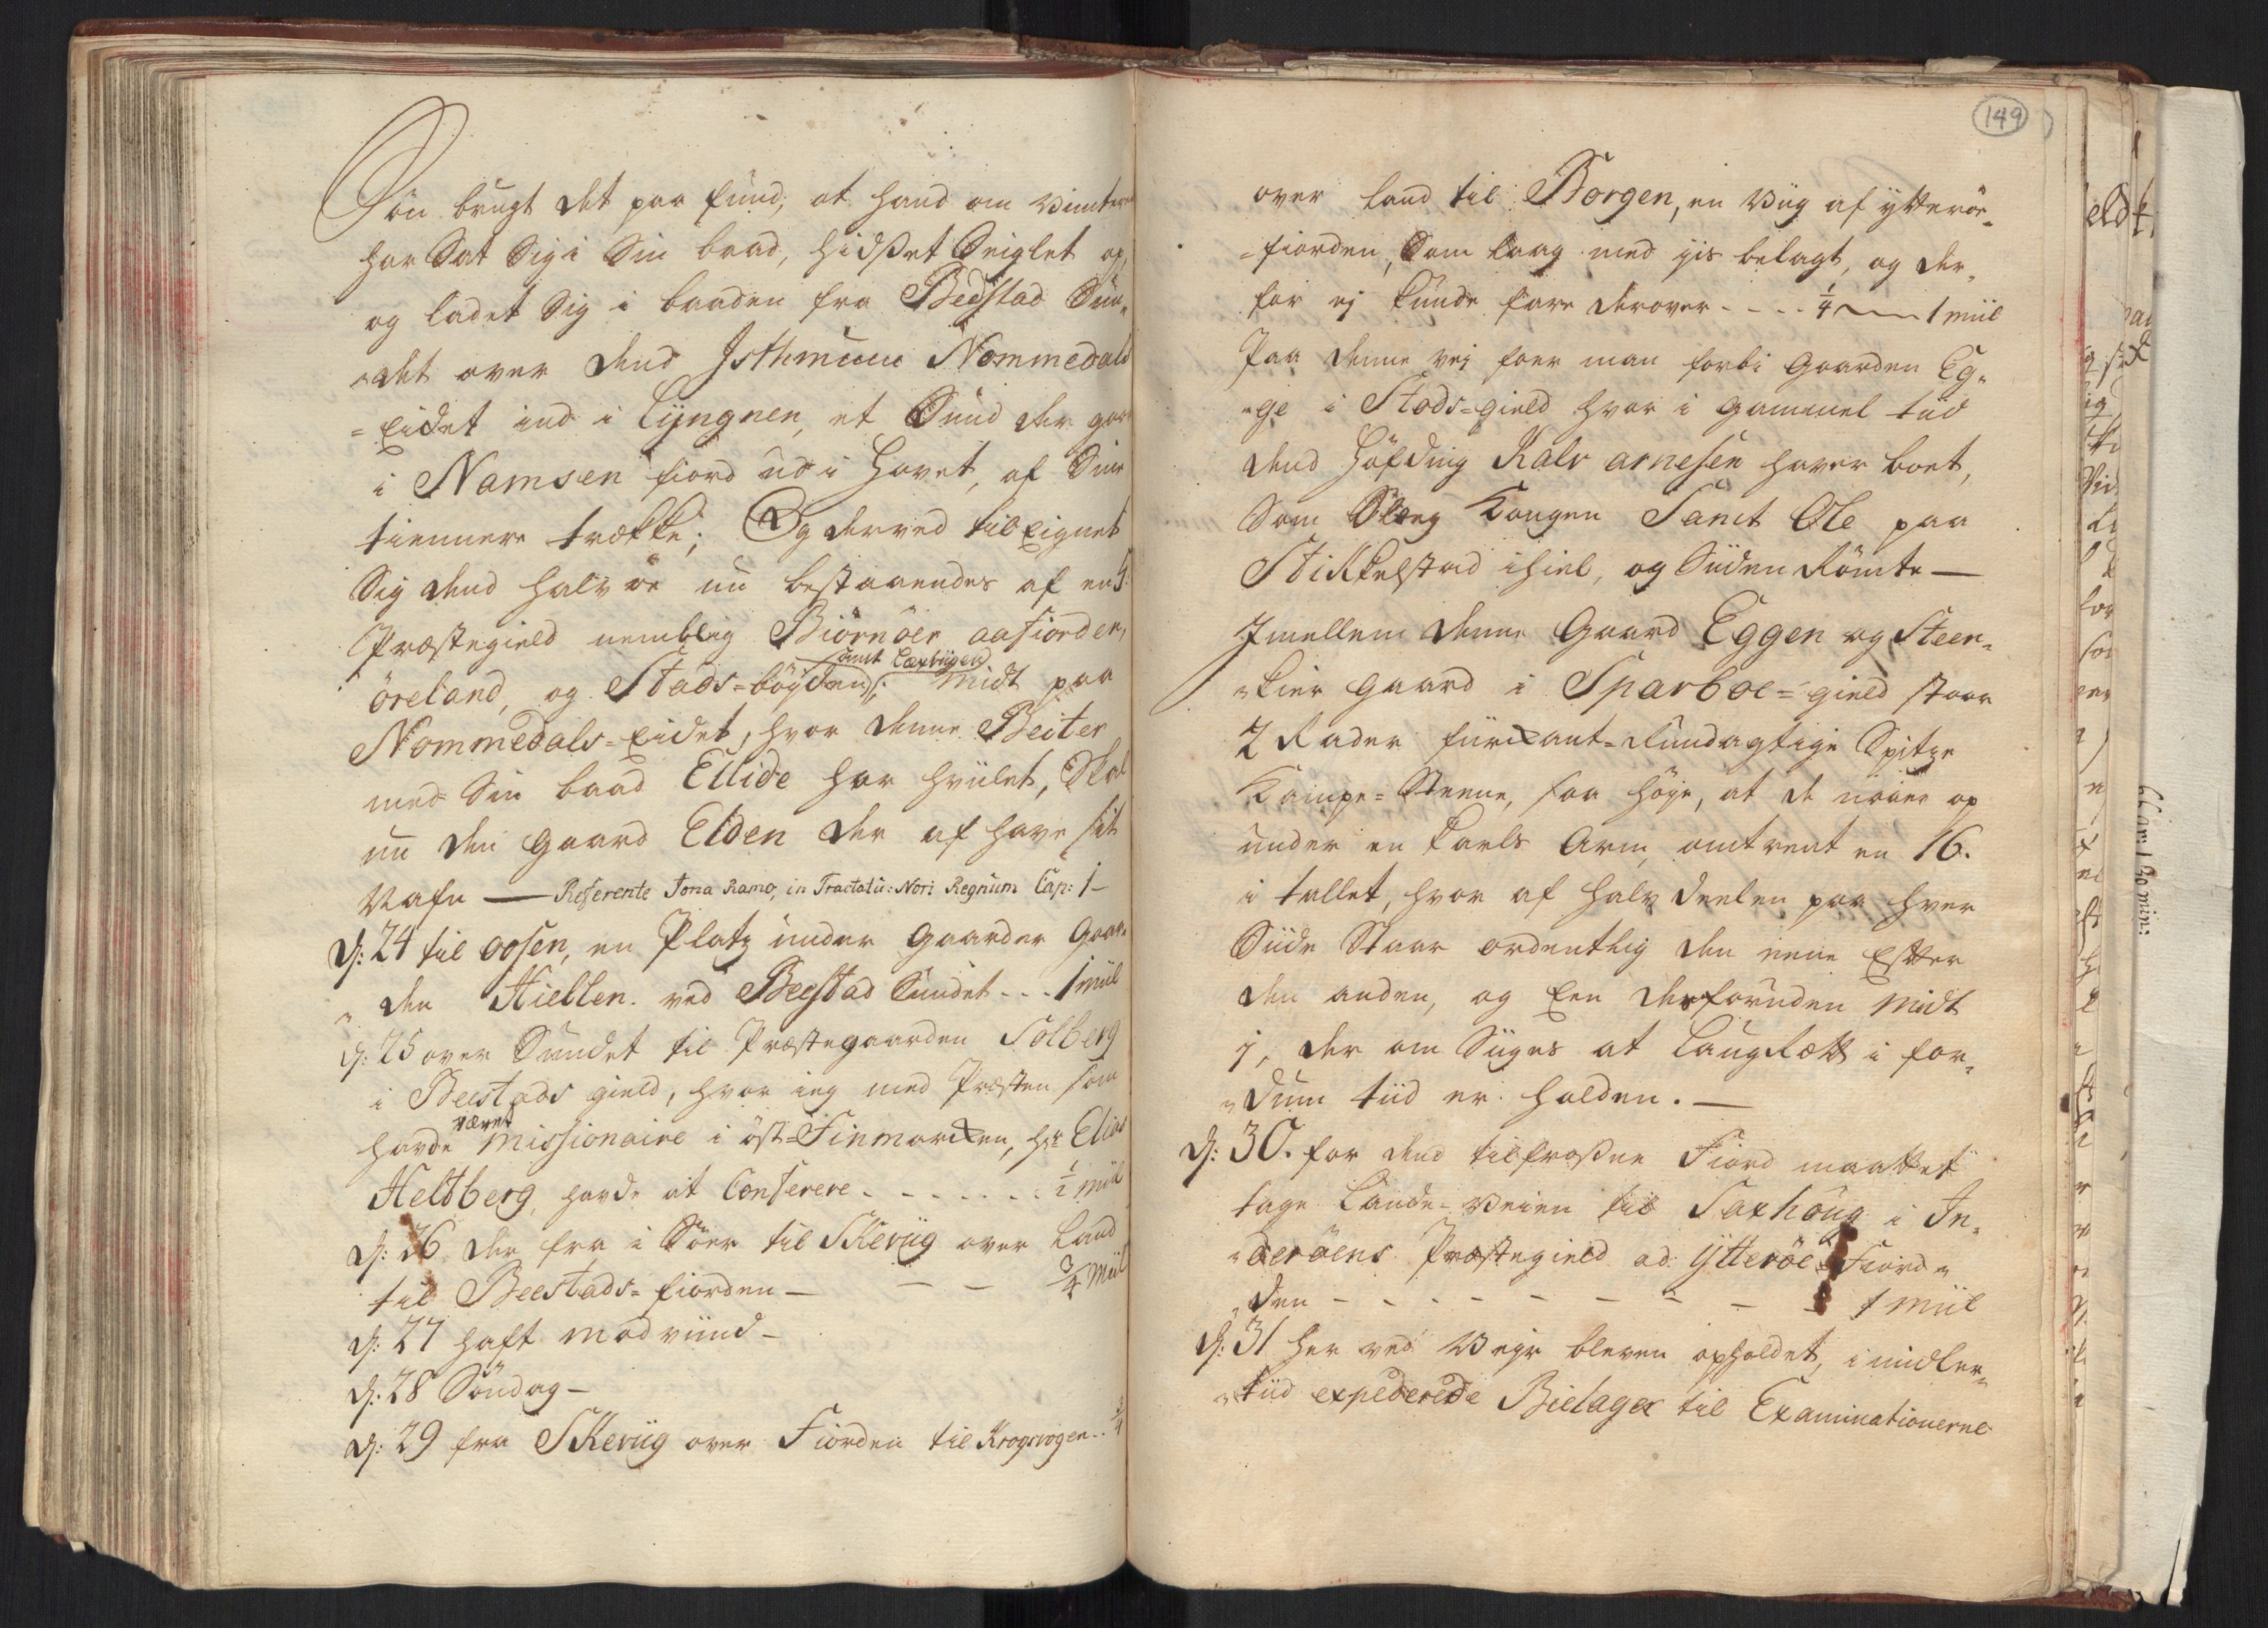 Søn brugt det paa fund, at hand om Vinteren
har Sat Sig i Sin baad, hidsset Seiglet op,
og ladet Sig i baaden fra Bedstad Sun„
„det over dend Isthmum Nommedals
=Eidet ind i Lyngnen, et Sund der gaar
i Namsen fiord ud i Havet, af Sine
tiennere trække; Og derved tilEignet
Sig dend halv øe nu bestaaendes af en 5
Præstegield nemblig Biørnøer, aafiorden,
samt Laxviigen
øreland, og Stads=bøygden; midt paa
Nommedals=Eidet, hvor denne Beiter
med Sin baad Ellide har hviilet, Skal
nu den gaard Elden der af have sit
Nafn — Referente Jona Ramo, in Tractatu: Nori Regnum Cap: 1 —
d: 24 til oosen, en Platz under Gaarden Gaar„
„den Hiellen ved Beestad Sundet - - - 1 miil
d: 25 over Sundet til Præstegaarden Solberg
i Beestads gield, hvor ieg med Præsten som
været
havde missionaire i øst=Finmarken, Hr Elias
Heltberg, havde at Conferere - - - - - - - 1/2 miil
d: 26 der fra i Søer til Skeviig over Land
til Beestads=fiorden — — — 3/4 Miil
d: 27 haft modviind —
d: 28 Søndag —
d: 29 fra Skeviig over Fiorden til Krogsvogen - - 3/4
149
over land til Borgen, en Viig af ytterøe„
=fiorden, Som laag med iis belagt, og der„
for ej kunde fare derover - - - - 1/4 — 1 miil
Paa denne vej foer man forbi Gaarden Eg„
„ge i Stods=gield hvor i gammel tiid
dend Høfding Kalv arnesen haver boet,
Som Slaeg Kongen Sanct Ole paa
Stikkelstad ihiel, og Siiden Rømte —
Jmellem denne Gaard Eggen og Steen„
„kier gaard i Sparboe=gield staar
2 Rader fiirkant=Rundagtige Spitze
Kampe=Steene, saa høye, at de naaer op
under en karls Arm, omtrent en 16.
i tallet, hvor af halv deelen paa hver
Siide Staar ordentlig den eene Efter
den anden, og Een derforuden midt
i, der om Siiges at Laugrætt i for„
„dum tiid er holden. —
d: 30. for dend tilfrossne Fiord maattet
tage Lande=Veien til Saxhoug i In„
„derøens Præstegield ad Ytterøe=Fiord„
„den - - - - - - - - - 1 Miil
d: 31 her ved Vejr bleven opholdet, imidler„
„tiid expederede Bielager til Examinationerne